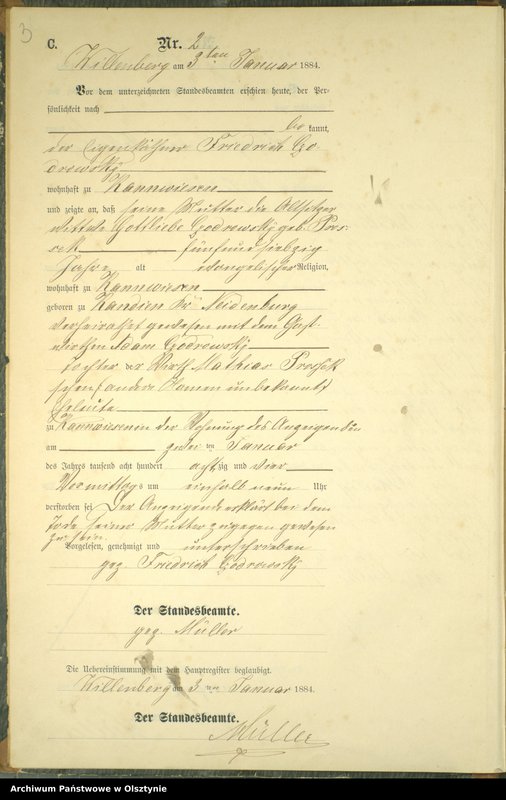 3
C. Nr. 2
Willenberg am 3ten Januar 1884.
Vor dem unterzeichneten Standesbeamten erschien heute, der Per-
sönlichkeit nach
be kannt,
der Eigenkäthner Friedrich Czo-
drowsky
wohnhaft zu Kannwiesen
und zeigte an, daß seine Mutter die Altsitzer
Wittwe Gottliebe Czodrowsky geb.
fünfundsiebzig
Jahre alt evangelischer Religion,
wohnhaft zu Kannwiesen
geboren zu Kr. Neidenburg
verheirathet gewesen mit dem Gast-
wirthen Adam Czodrowsky
Tochter der Wirth Mathias
schen, andere Namen unbekannt,
Eheleute
zu Kannwiesen in der Wohnung des Anzeigenden
am zwei ten Januar
des Jahres tausend acht hundert acht zig und vier
Vormittags um einhalb neun Uhr
verstorben sei Der Anzeigende erklärt bei dem
Tode seiner Mutter zugegen gewesen
zu sein.
Vorgelesen, genehmigt und unterschrieben
gez. Friedrich Czodrowsky
Der Standesbeamte.
gez. Müller
Die Uebereinstimmung mit dem Hauptregister beglaubigt.
Willenberg am 3ten Januar 1884.
Der Standesbeamte.
Müller
Archiwum Państwowe w Olsztynie